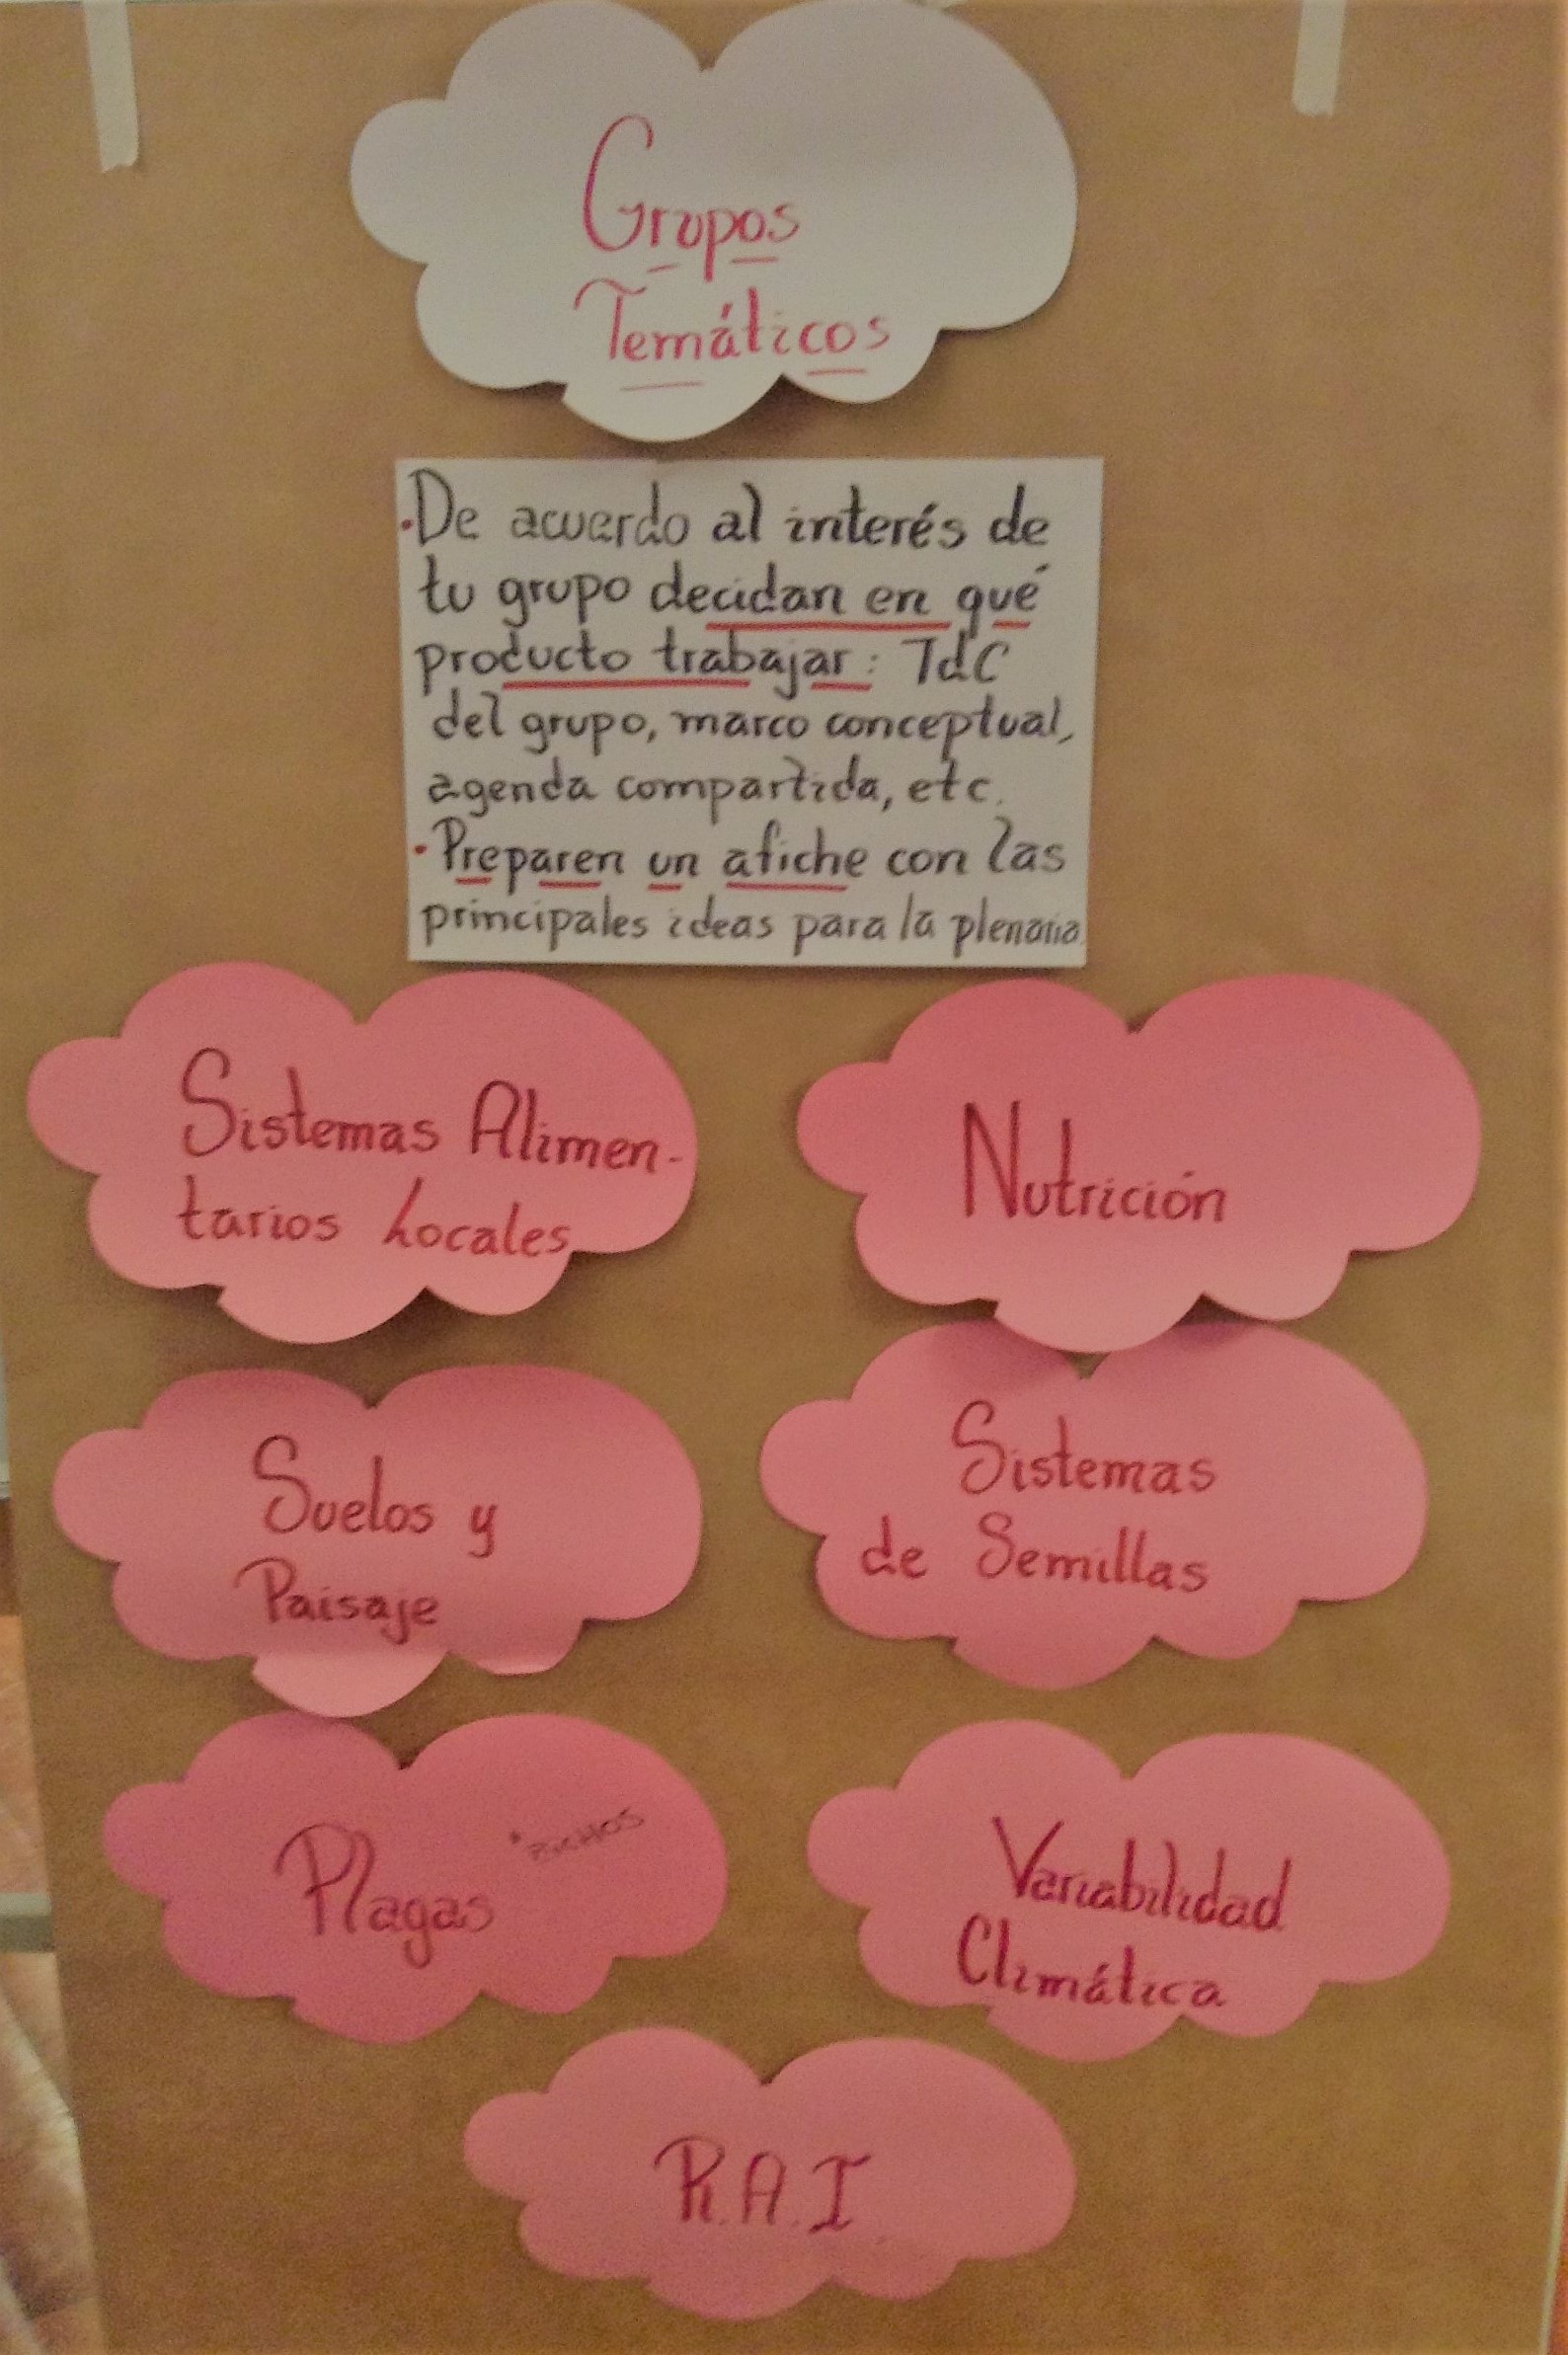 Grupos
Temáticos
• De acuerdo al interés de
tu grupo decidan en qué
producto trabajar: TdC
del grupo, marco conceptual,
agenda compartida, etc.
• Preparen un afiche con las
principales ideas para la plenaria
Sistemas Alimen-
tarios Locales
Nutrición
Suelos y
Paisaje
Sistemas
de Semillas
Plagas
Variabilidad
Climática
R.A.I.